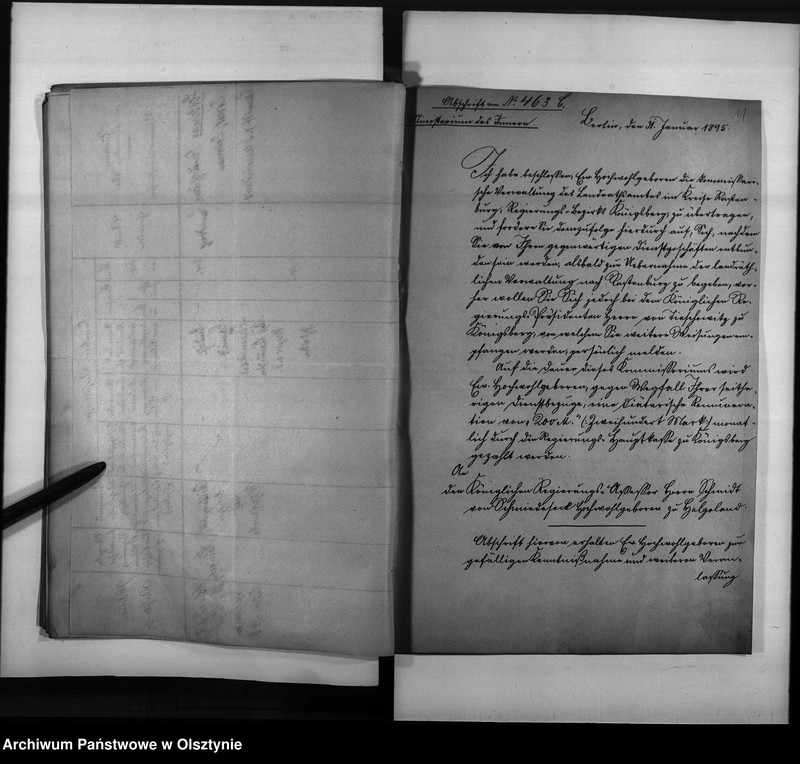 11
Abschrift von № 463 C.
Ministerium des Innern.
Berlin, den 31. Januar 1895.
Ich habe beschlossen, Ew. Hochwohlgeboren die kommissari-
sche Verwaltung des Landrathsamtes im Kreise Rasten-
burg, Regierungs-Bezirks Königsberg, zu übertragen,
und fordere Sie demzufolge hierdurch auf, Sich, nachdem
Sie von Ihren gegenwärtigen Dienstgeschäften entbun-
den sein werden, alsbald zur Uebernahme der landräth-
lichen Verwaltung nach Rastenburg zu begeben, vor-
her wollen Sie Sich jedoch bei dem Königlichen Re-
gierungs-Präsidenten Herrn von Tieschowitz zu
Königsberg, von welchem Sie weitere Weisungen em-
pfangen werden, persönlich melden.
Auf die Dauer dieses Kommissoriums wird
Ew. Hochwohlgeboren, gegen Wegfall Ihrer seithe-
rigen Dienstbezüge, eine diätarische Remunera-
tion von „200 M." (Zweihundert Mark) monat-
lich durch die Regierungs-Hauptkasse zu Königsberg
gezahlt werden.
An
den Königlichen Regierungs-Assessor Herrn Schmidt
von Schmiedeseck Hochwohlgeboren zu Helgoland.
Abschrift hiervon erhalten Ew. Hochwohlgeboren zur
gefälligen Kenntnißnahme und weiteren Veran-
lassung
Archiwum Państwowe w Olsztynie